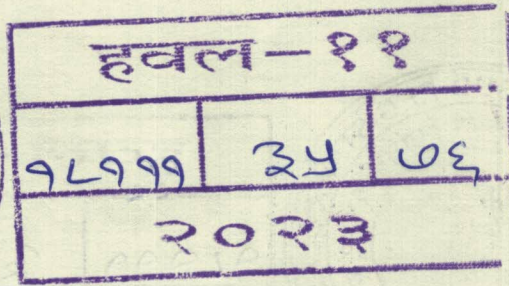 हवल-११
१८१११ ३५ ७६
२०२३